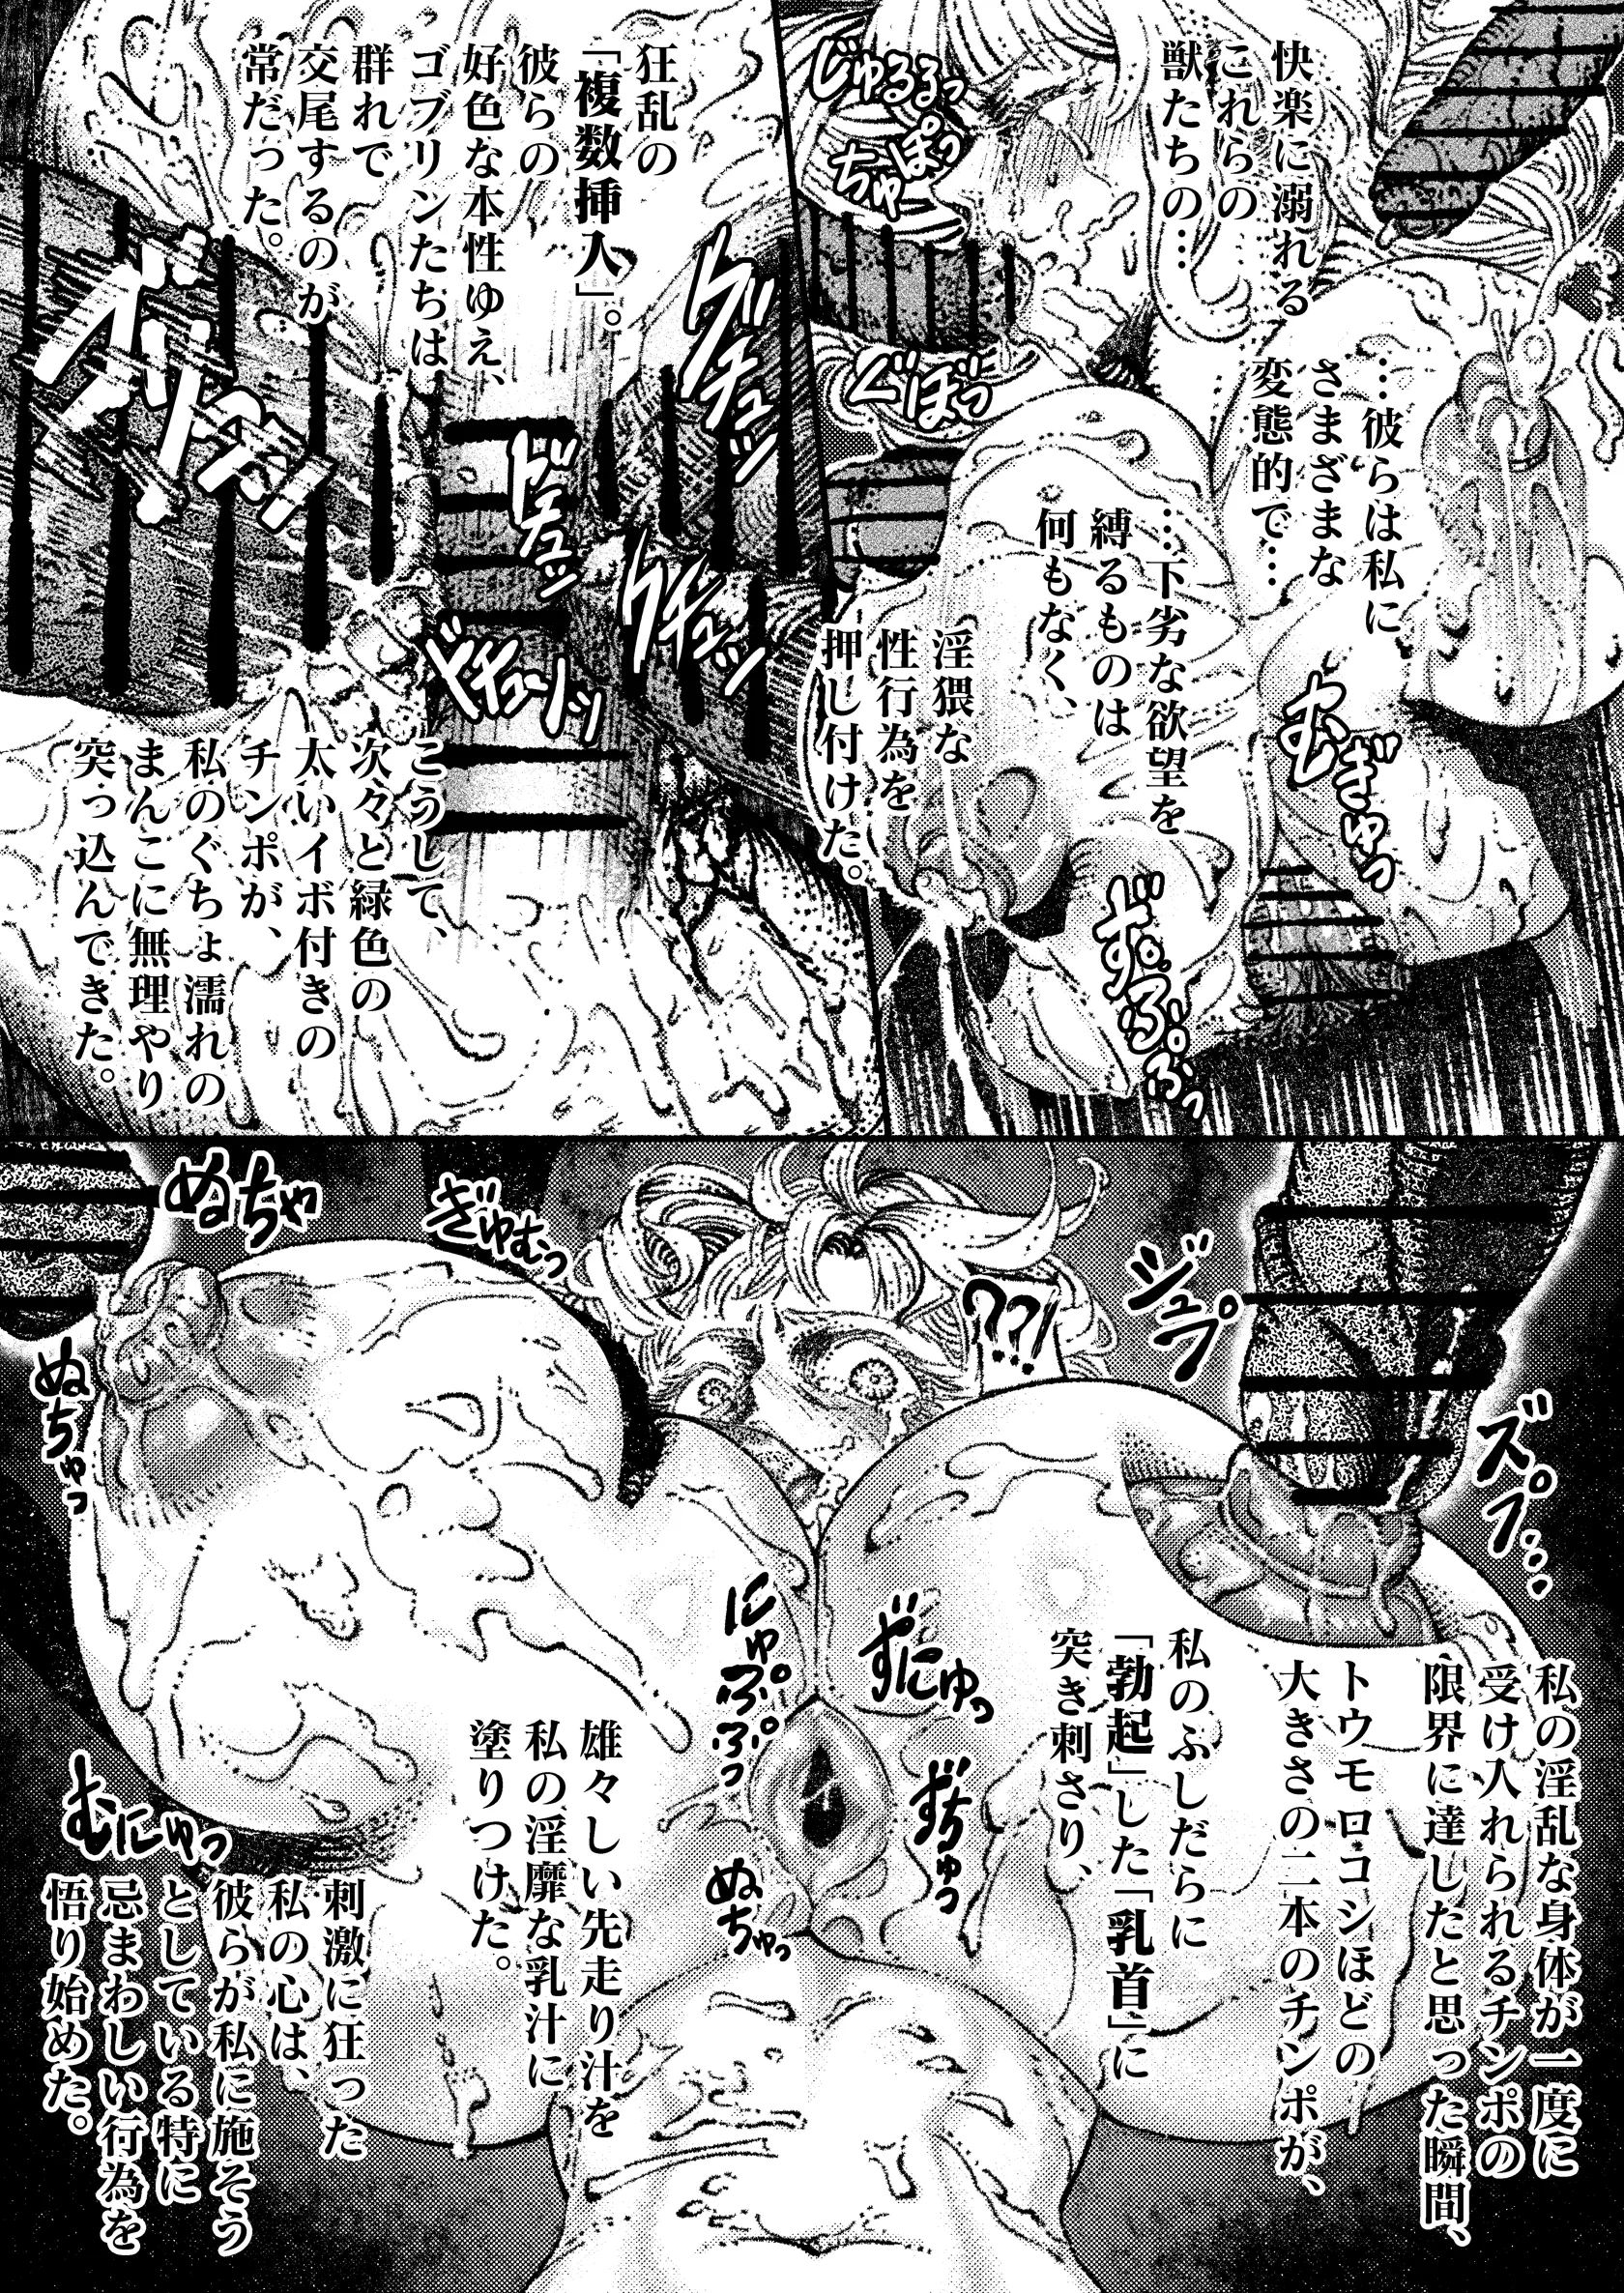 快楽に溺れる
これらの
獣たちの…
…彼らは私に
さまざまな
変態的で…
…下劣な欲望を
縛るものは
何もなく、
淫猥な
性行為を
押し付けた。
じゅるるっ
ちゅぽっ
ぐぼっ
むぎゅっ
ずぷぷっ
狂乱の
「複数挿入」。
彼らの
好色な本性ゆえ、
ゴブリンたちは
群れで
交尾するのが
常だった。
グチュッ
ドチュッ
グチュッ
ドチューッ
こうして、
次々と緑色の
太いイボ付きの
チンポが、
私のぐちょ濡れの
まんこに無理やり
突っ込んできた。
ジュプ
ズプ…
??!
ぎゅむっ
ぬちゃ
ぬちゅっ
私の淫乱な身体が一度に
受け入れられるチンポの
限界に達したと思った瞬間、
トウモロコシほどの
大きさの二本のチンポが、
私のふしだらに
「勃起」した「乳首」に
突き刺さり、
ずにゅっ
ずちゅっ
にゅぷぷっ
ぬちゃっ
雄々しい先走り汁を
私の淫靡な乳汁に
塗りつけた。
むにゅっ
刺激に狂った
私の心は、
彼らが私に施そう
としている特に
忌まわしい行為を
悟り始めた。